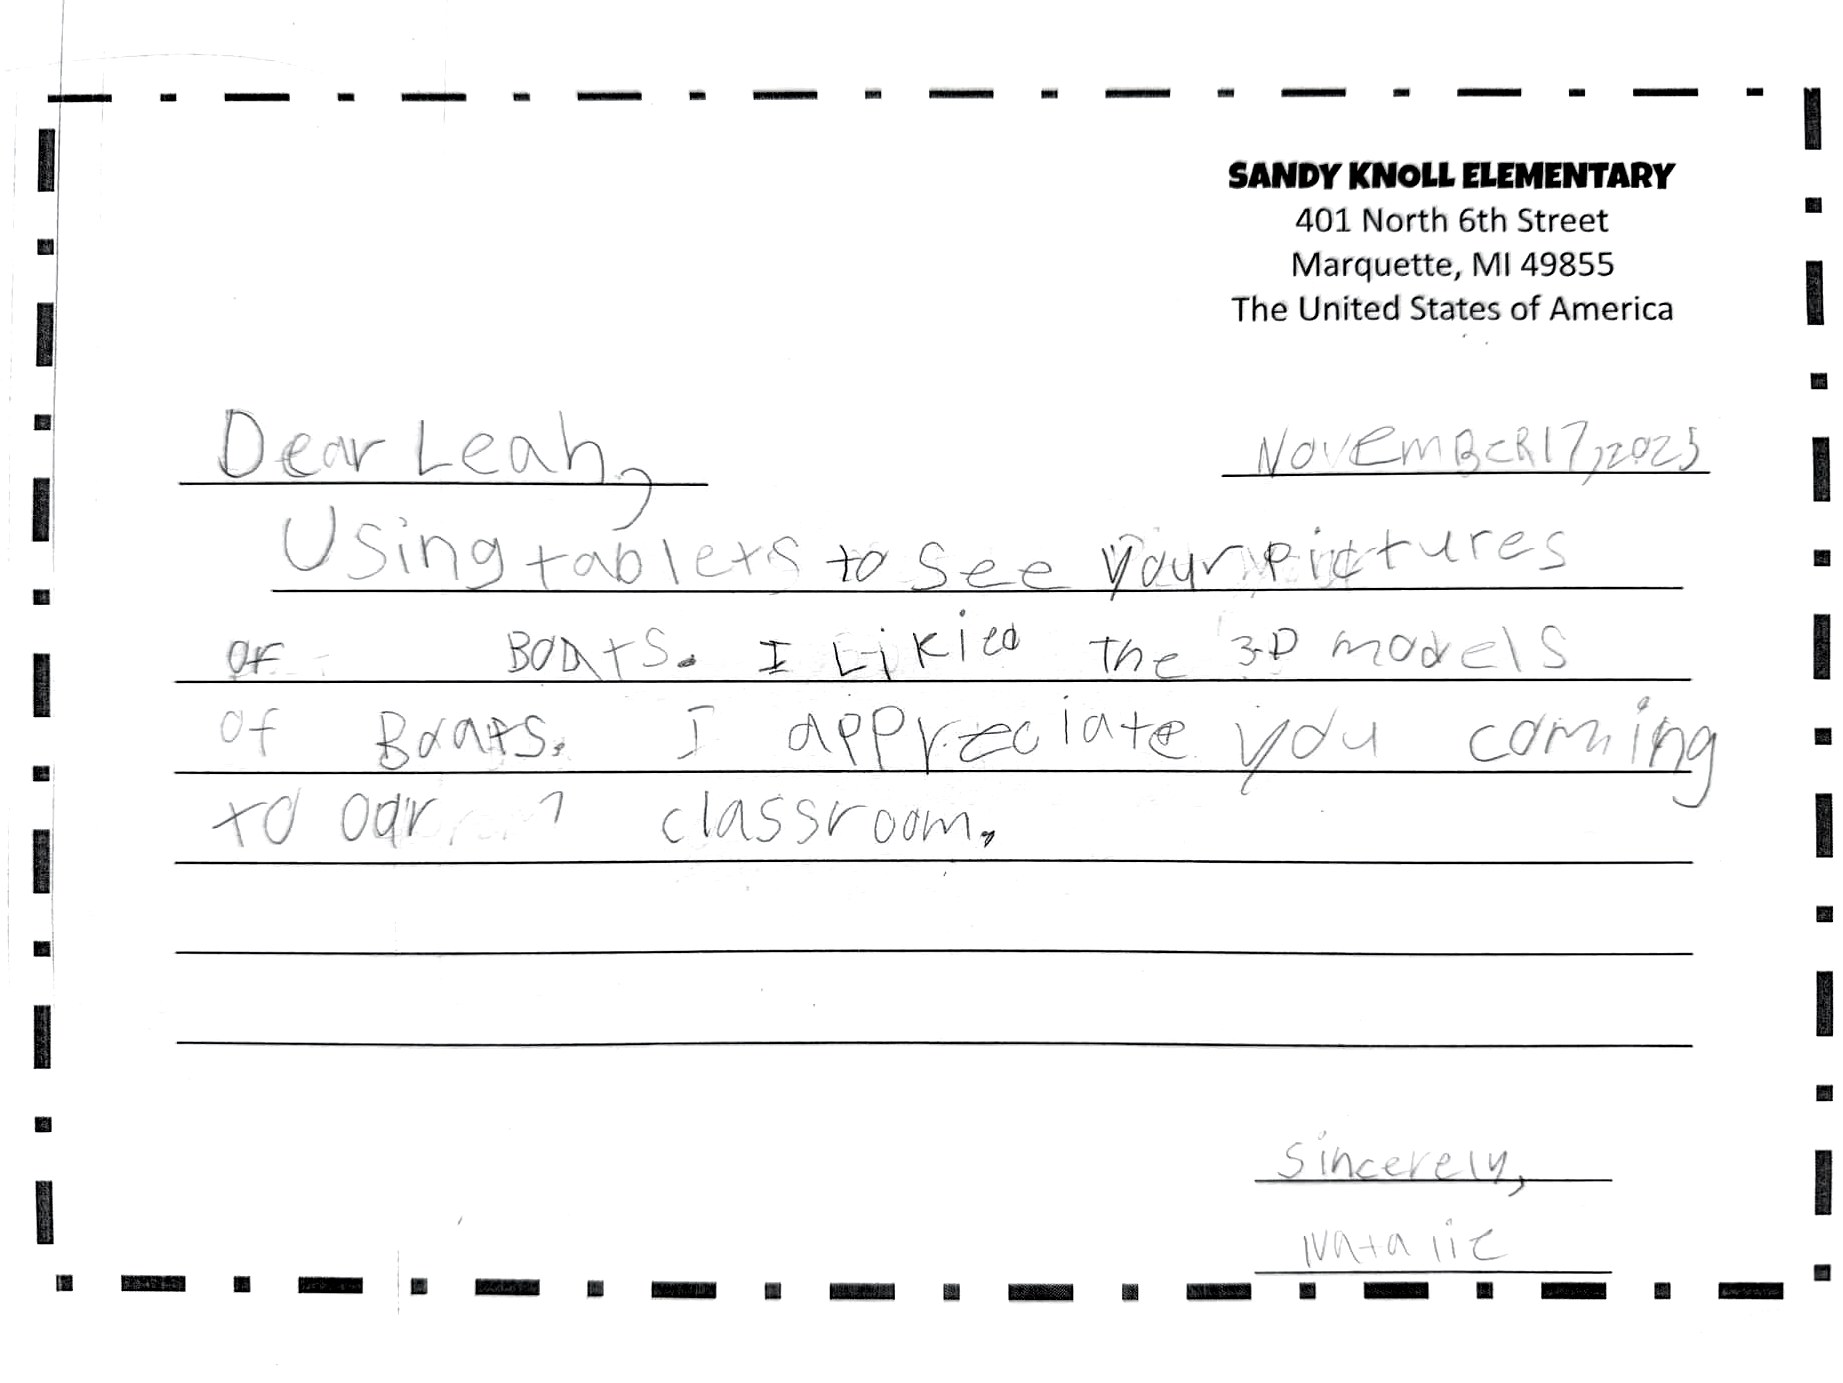 SANDY KNOLL ELEMENTARY
401 North 6th Street
Marquette, MI 49855
The United States of America
Dear Leah,
NOVEMBER 17, 2025
Using tablets to see your pictures
of Boats. I Likied the 3-D models
of Boats. I appreciate you coming
to our classroom.
Sincerely,
Natalie